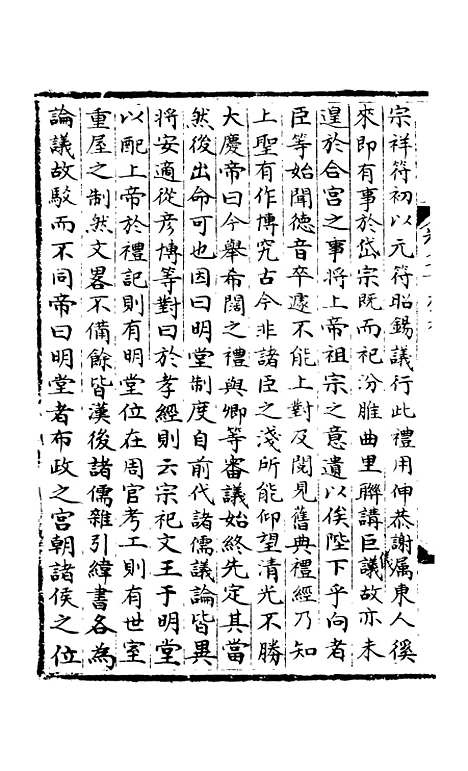 宗祥符初以元符昭錫議行此禮用伸恭謝属東人徯
來即有事於岱宗既而祀汾脽曲里聮講巨議故亦未
儀
遑於合宮之事將上帝祖宗之意遺以俟陛下乎向者
臣等始聞德音卒遽不能上對及閱見舊典禮經乃知
上聖有作博究古今非諸臣之淺所能仰望清光不勝
大慶帝曰今舉希闊之禮與卿等審議始終先定其當
然後出命可也因曰明堂制度自前代諸儒議論皆異
將安適從彦博等對曰於孝經則云宗祀文王于明堂
以配上帝於禮記則有明堂位在周官考工則有世室
重屋之制然文畧不備餘皆漢後諸儒雜引緯書各為
論議故駮而不同帝曰明堂者布政之宮朝諸侯之位